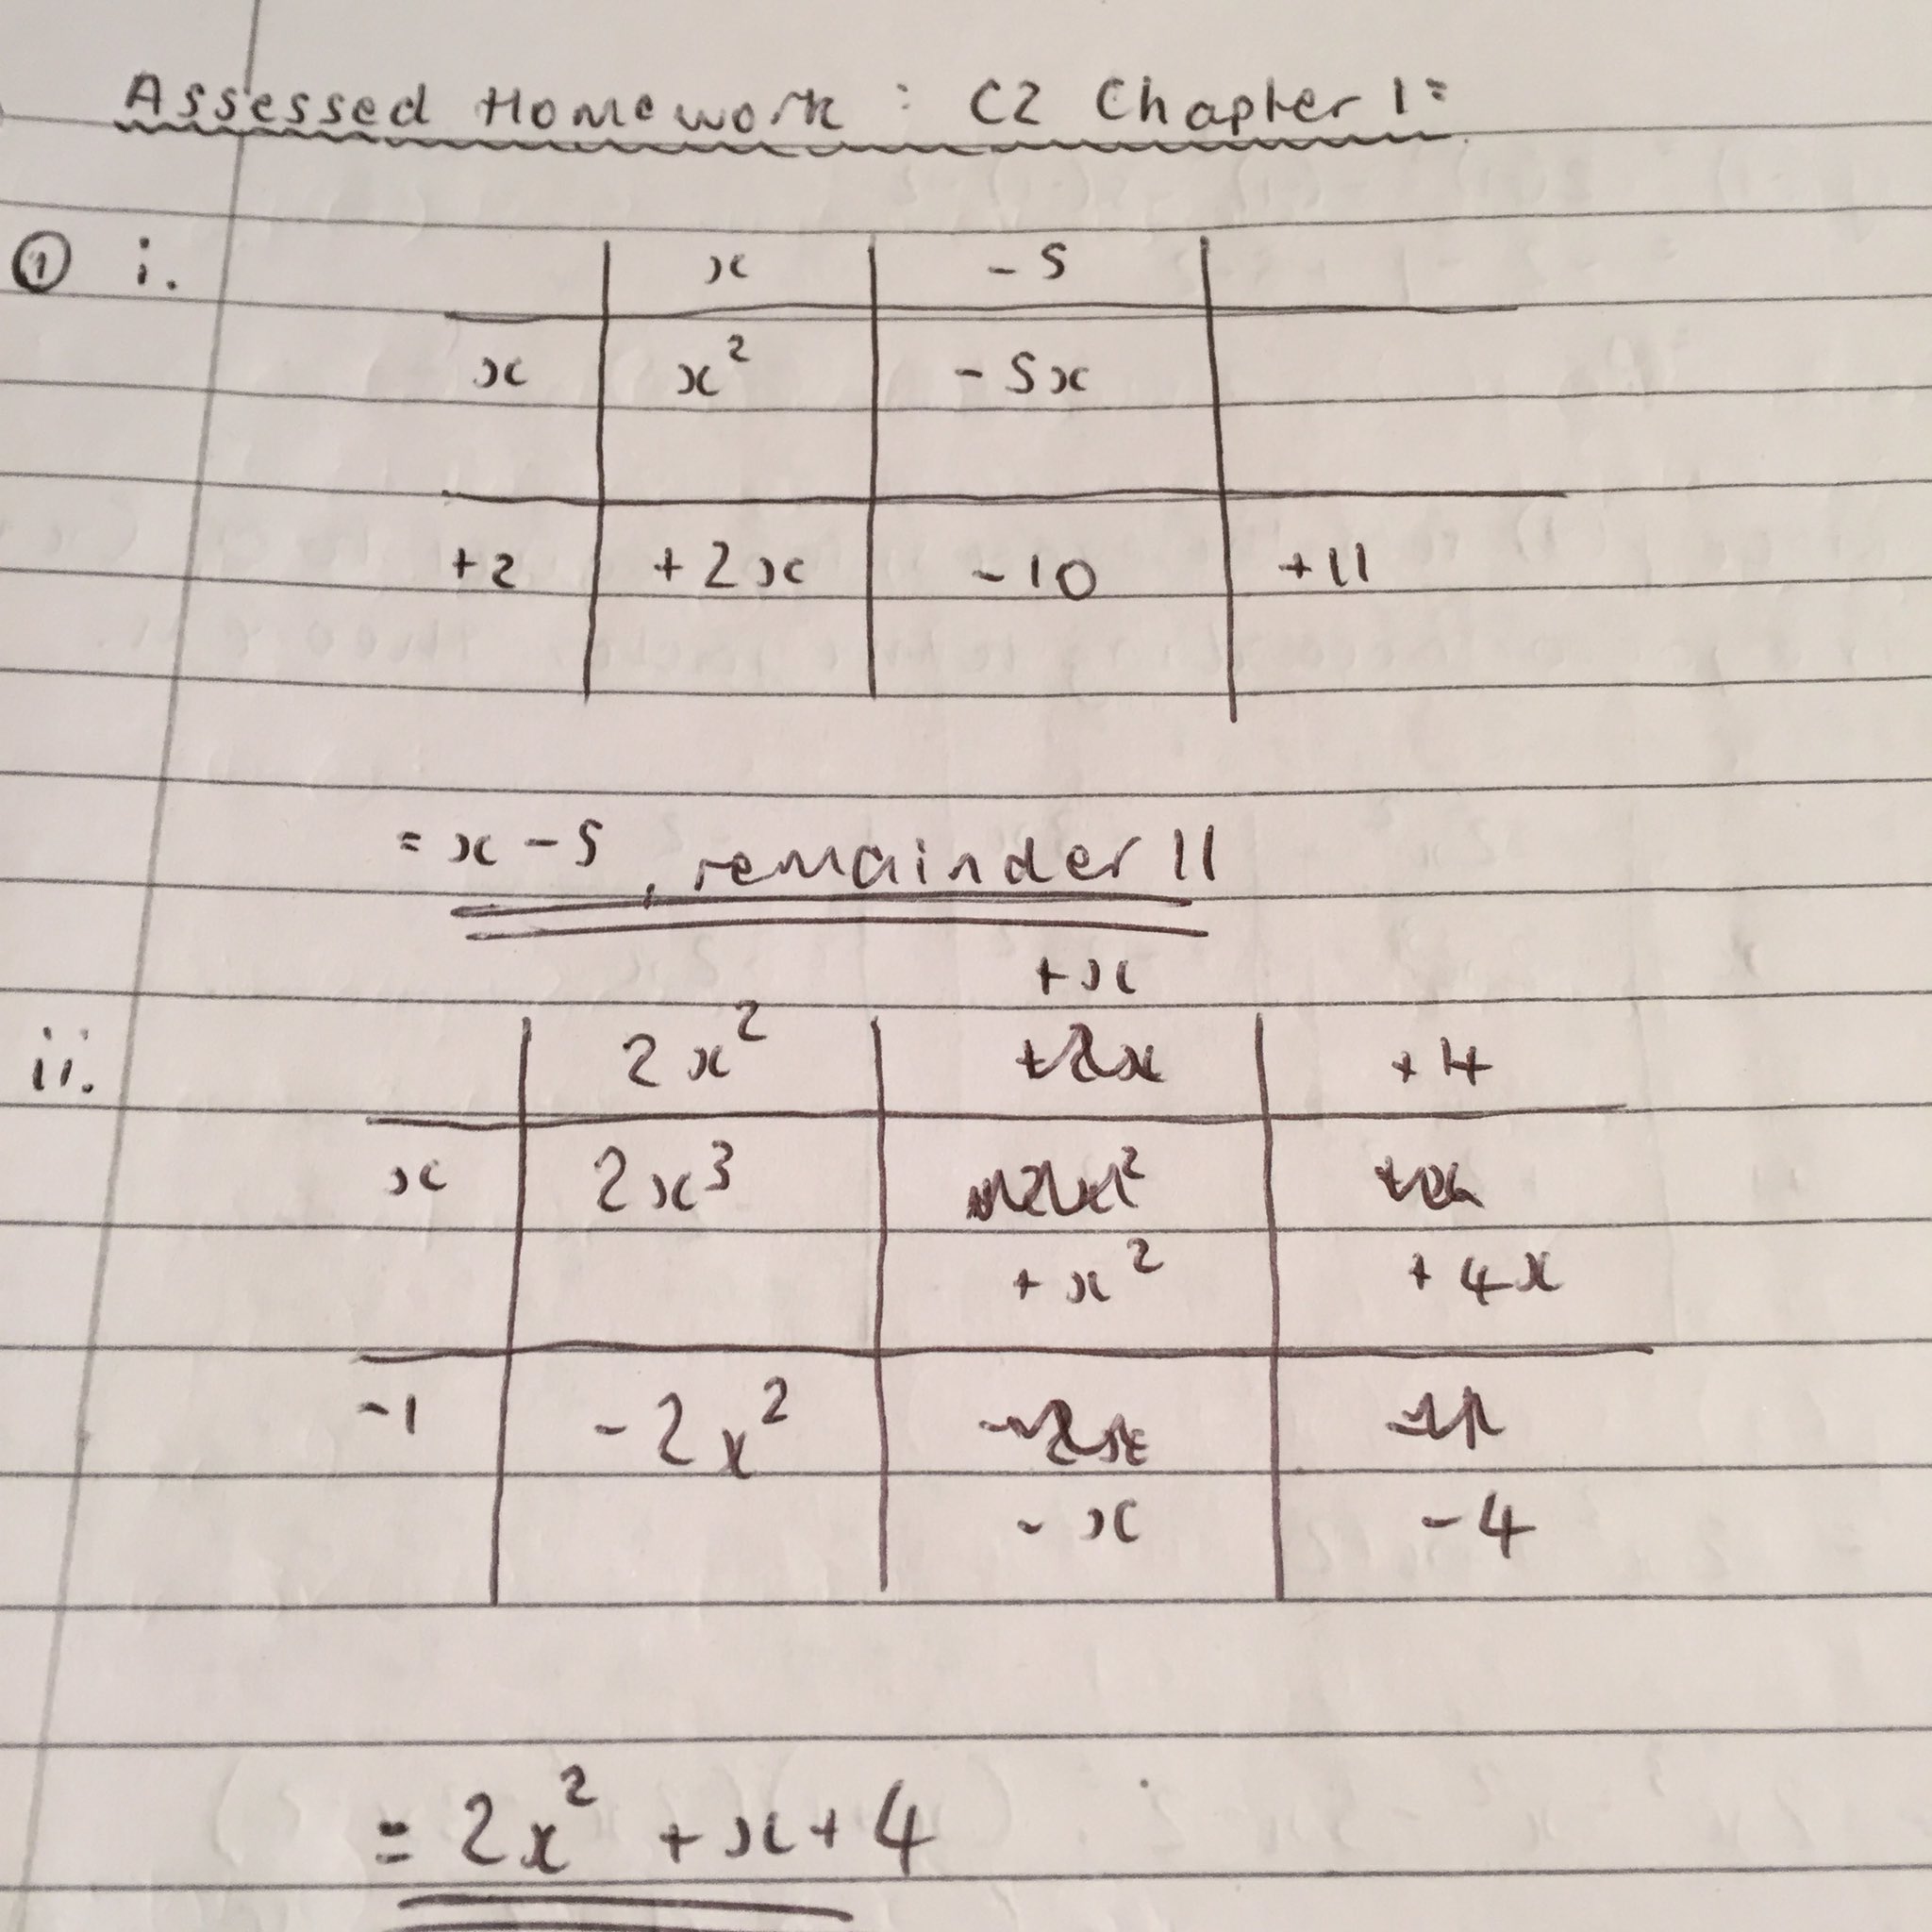 Assessed Homework : C2 Chapter 1:
① i.
x -5
x x² -5x
+2 +2x -10 +11
= x - 5, remainder 11
+x
ii. 2x² +2x +4
x 2x³
+x² +4x
-1 -2x²
-x -4
= 2x² + x + 4